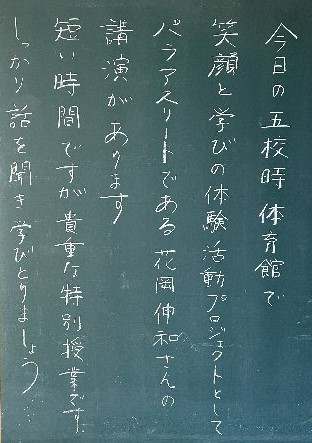 今日の五校時体育館で
笑顔と学びの体験活動プロジェクトとして
パラアスリートである花岡伸和さんの
講演があります
短い時間ですが貴重な特別授業です。
しっかり話を聞き学びとりましょう